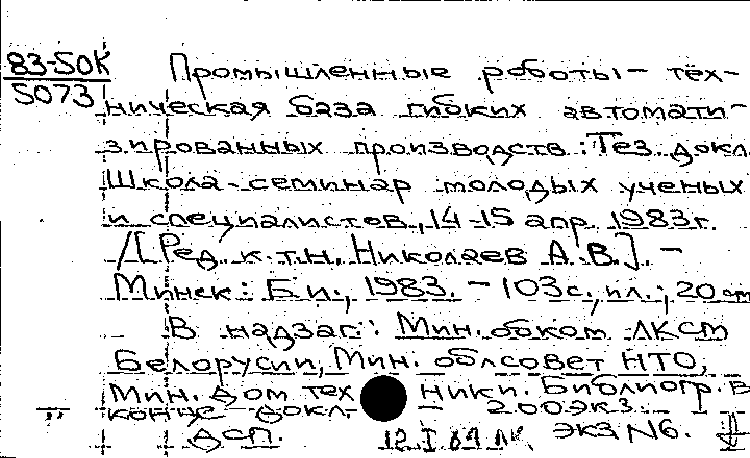 83-50К
5073
Промышленные роботы - тех-
ническая база гибких автомати-
зированных производств: Тез. докл.
Школа-семинар молодых ученых
и специалистов, 14-15 апр. 1983г.
/[Ред. к.т.н. Николаев А.В.]. -
Минск: Б.и., 1983. - 103с., ил.; 20см
В надзаг.: Мин. обком ЛКСМ
Белорусии, Мин. облсовет НТО,
Мин. дом тех ники. Библиогр. в
конце докл. - 200экз.
ДСП. экз N6.